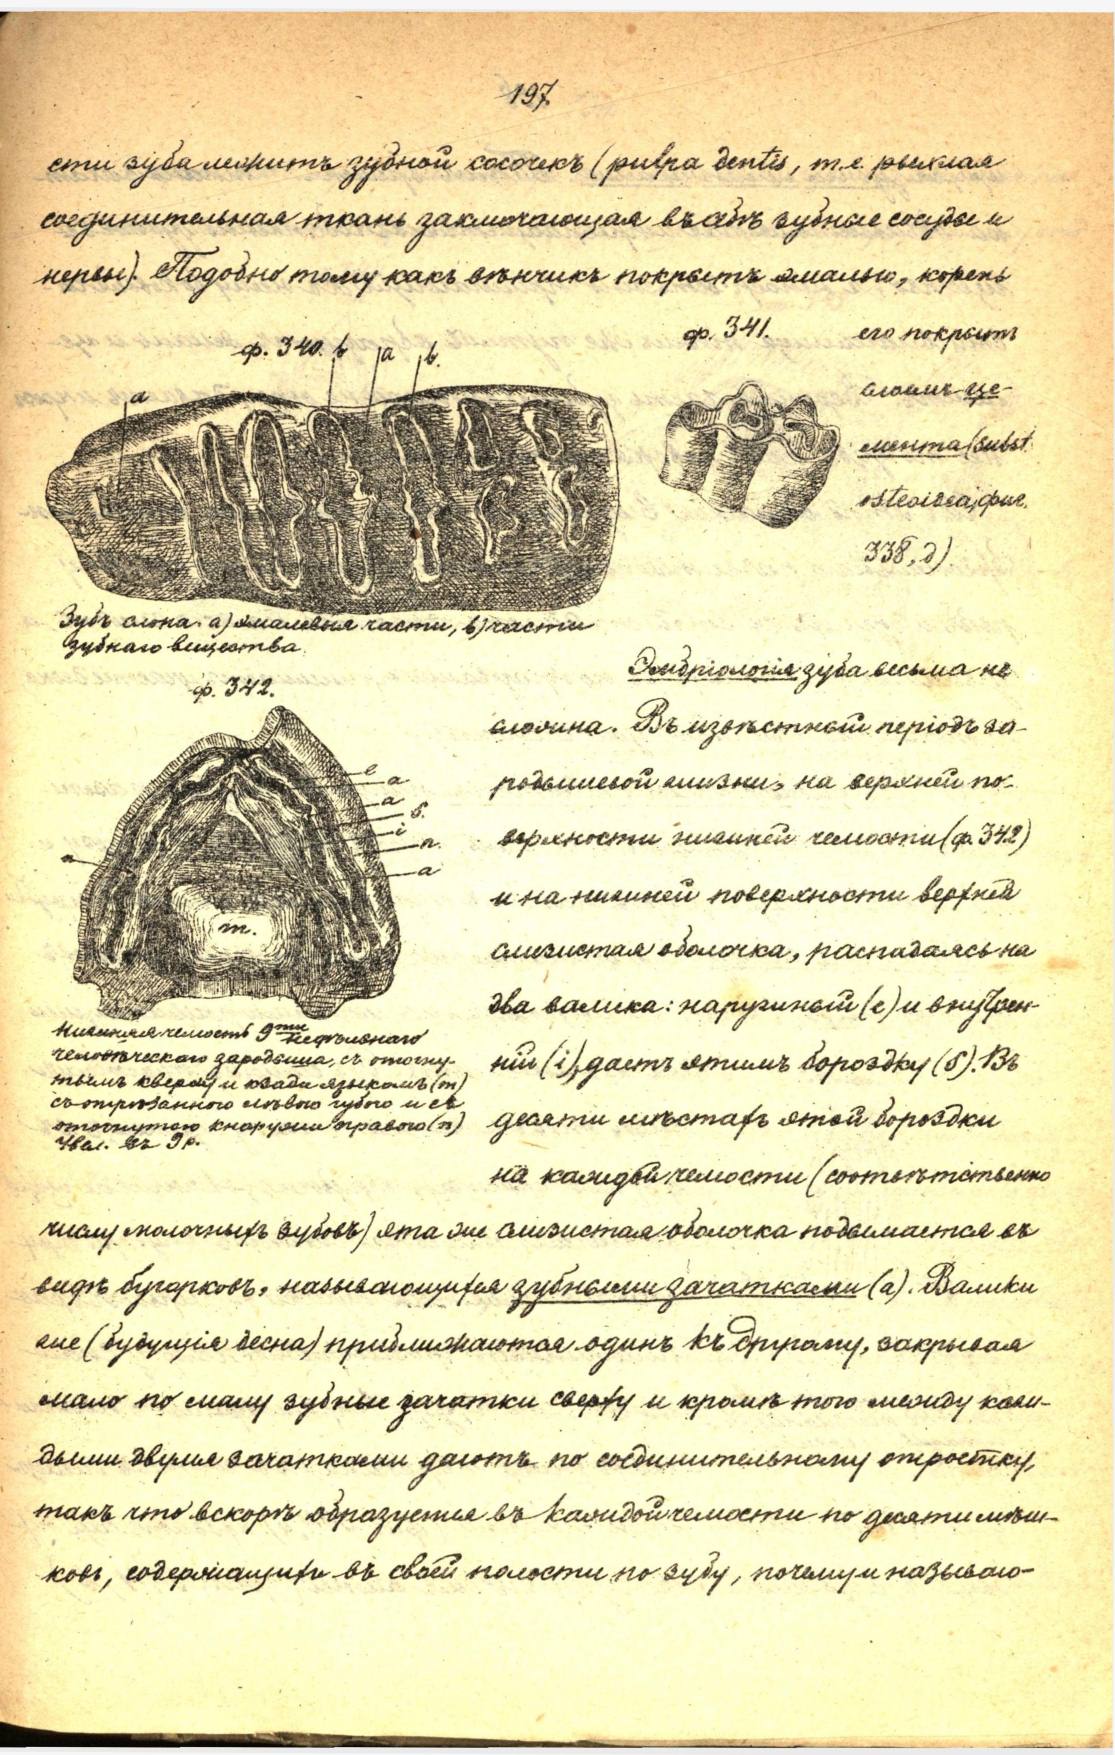 197
сти зуба лежитъ зубной сосочекъ (pulpa dentis, т.е. рыхлая
соединительная ткань заключающая въ себѣ зубные сосуды и
нервы). Подобно тому какъ вѣнчикъ покрытъ эмалью, корень
ф. 341.
его покрытъ
слоемъ це-
мента (subst.
osteoidea, фиг.
338, д)
ф. 340.
b
a
b.
a
Зубъ слона. а) эмалевыя части, в) части
зубнаго вещества.
ф. 342.
e
a
a
б.
i
n.
a
n
m.
Нижняя челюсть 9ти недѣльнаго
человѣческаго зародыша, съ отогну-
тымъ кверху и кзади языкомъ (m)
съ отрѣзанною лѣвою губою и съ
отогнутою кнаружи правою (n)
Увел. въ 9 р.
Эмбріологія зуба весьма не
сложна. Въ извѣстный періодъ за-
родышевой жизни, на верхней по-
верхности нижней челюсти (ф. 342)
и на нижней поверхности верхней
слизистая оболочка, распадаясь на
два валика: наружный (е) и внутрен-
ній (i), даетъ этимъ бороздку (б). Въ
десяти мѣстахъ этой бороздки
на каждой челюсти (соотвѣтственно
числу молочныхъ зубовъ) эта же слизистая оболочка подымается въ
видѣ бугорковъ, называющихся зубными зачатками (а). Валики
же (будущія десна) приближаются одинъ къ другому, закрывая
мало по малу зубные зачатки сверху и кромѣ того между каж-
дыми двумя зачатками даютъ по соединительному отростку,
такъ что вскорѣ образуется въ каждой челюсти по десяти мѣш-
ковъ, содержащихъ въ своей полости по зубу, почему и называю-